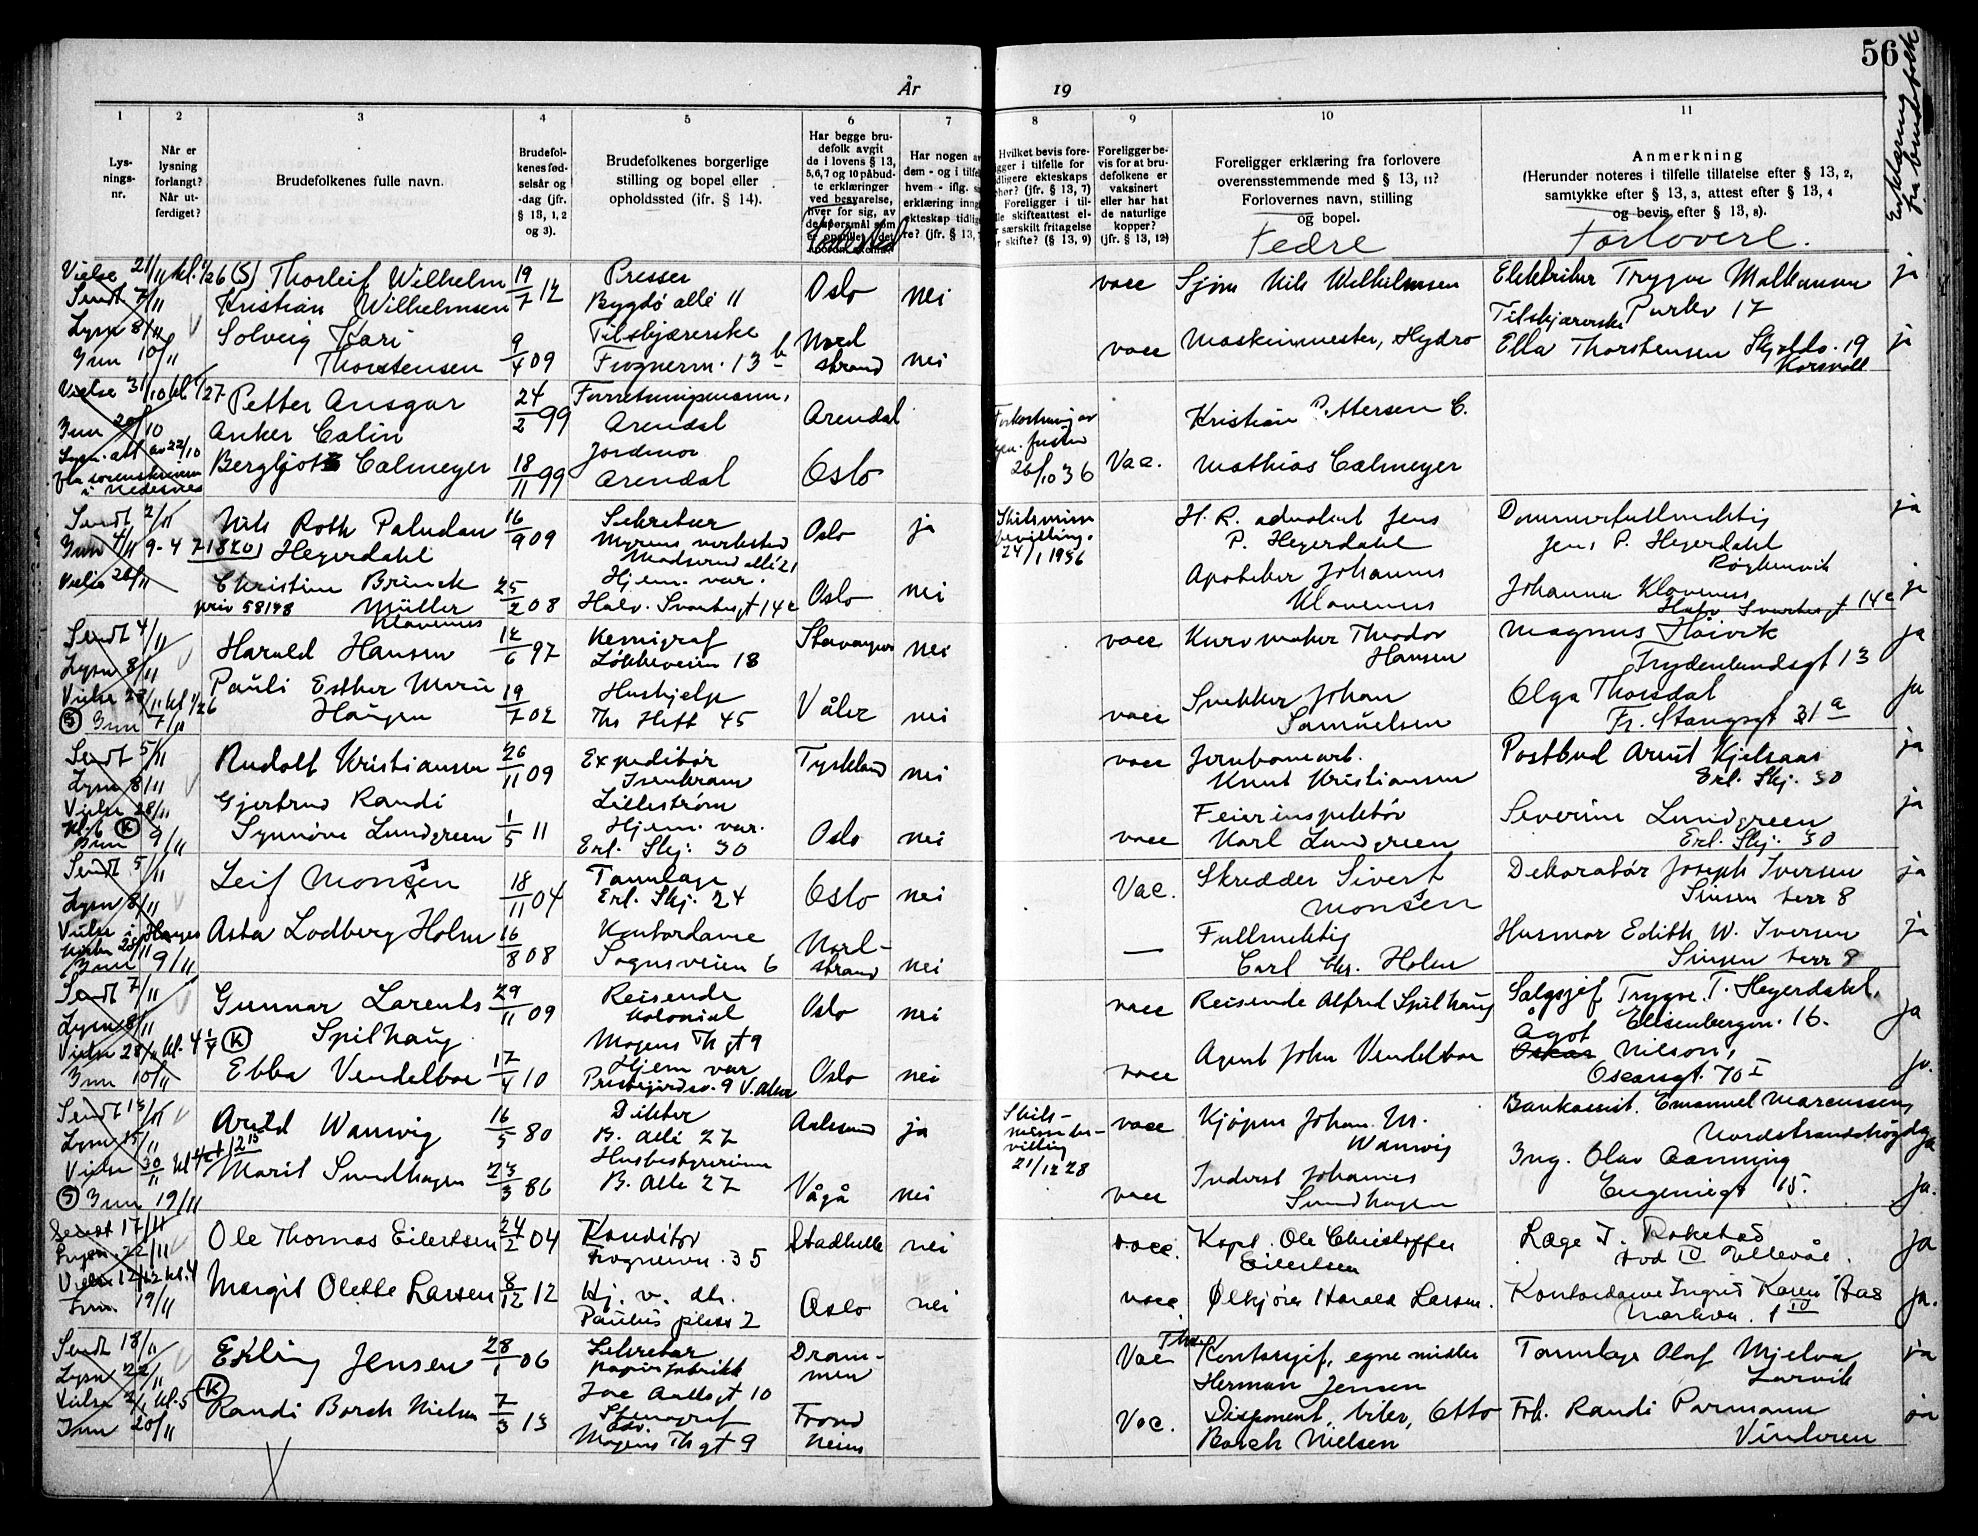 56
Erklæring fra brudefolk
År 19
1
2
3
4
5
6
7
8
9
10
11
Lysningsnr.
Når er lysning forlangt? Når utferdiget?
Brudefolkenes fulle navn.
Brudefolkenes fødselsår og -dag (jfr. § 13, 1, 2 og 3).
Brudefolkenes borgerlige stilling og bopel eller opholdssted (jfr. § 14).
Har begge brudefolk avgit de i lovens § 13, 5,6,7 og 10 påbudte erklæringer ved besvarelse, hver for sig, av de spørsmål som er
Fødested
Har nogen av dem - og i tilfelle hvem - iflg.
erklæring inngått ekteskap tidligere? (jfr. § 13,
Hvilket bevis foreligger i tilfelle for tidligere ekteskaps ophør? (jfr. § 13, 7) Foreligger i tilfelle skifteattest eller særskilt fritagelse for skifte? (§ 13, 9)
Foreligger bevis for at brudefolkene er vaksinert eller har hat de naturlige kopper? (jfr. § 13, 12)
Foreligger erklæring fra forlovere overensstemmende med § 13, 11? Forlovernes navn, stilling og bopel.
Fedre
Anmerkning
(Herunder noteres i tilfelle tillatelse efter § 13, 2, samtykke efter § 13, 3, attest efter § 13, 4 og bevis efter § 13, 8).
Forlovere.
Vielse 21/11 kl. 1/26 (S) Thorleif Wilhelm 19/7 12 Presser Oslo nei vacc Sjøm Nils Wilhelmsen Elektriker Trygve Mathausen ja
Sendt 7/11 Kristian Wilhelmsen Bygdø allé 11 17
Lysn 8/11 Solveig Kari Tilskjærerske Nordstrand Tilskjærerske
Inn 10/11 Thorstensen 9/4 09 Frognerv. 13 b nei vacc Maskinmester, Hydro Ella Thorstensen 19 ja
Korsvoll
Vielse 31/10 kl 1/27 Petter Ansgar 24/2 99 Forretningsmann, Arendal Kristian Pettersen C.
Inn 20/10 Anker Calin Arendal
Lysn. att av 22/10 Bergljot Calmeyer 18/11 99 Jordmor Oslo 26/10 36 Vac. Mathias Calmeyer
fra sorenskriveren i Nedenes Arendal
Sendt 2/11 Nils Roth Paludan 16/9 09 Sekretær Oslo ja Skilsmisse bevilling. 24/1 1936 H. R. advokat Jens Dommerfullmektig ja
Inn 4/11 9-4 71840 Heyerdahl Myrens verksted P. Heyerdahl Jens P. Heyerdahl
Madserud allé 21 Røykenvik
Vielse 28/11 Christine Brinck 25/2 08 Hjem. var. Oslo nei Apoteker Johannes Johanne Klavenes ja
priv 58148 Müller Halv. Svartesgt 14 c Klavenes Halv Svartesgt 14 c
Klavenes
Sendt 4/11 Harald Hansen 12/6 97 Kemigraf Stavanger nei vacc Kurvmaker Theodor Magnus Høivik ja
Lysn 8/11 Løkkeveien 18 Hansen Frydenlundsgt 13
Vielse 28/11 kl 1/26 Pauli Esther Marie 19/7 02 Hushjelp Våler nei vacc Snekker Johan Olga Thorsdal ja
(S) Inn 7/11 Haugen Ths Heft 45 Samuelsen Fr. Stangsgt 31 a
Sendt 5/11 Rudolf Kristiansen 26/11 09 Expeditør Tyskland nei vacc Jernbanearb. Postbud Arnt Kjelsaas ja
Lysn 8/11 Isenkram Knut Kristiansen Erl. Skj. 30
Vielse 28/11 Gjertrud Randi Lillestrøm Feierinspektør Severine Lundgreen ja
kl. 6 (K) Synnøve Lundgreen 1/5 11 Hjem. var. Oslo nei vacc Karl Lundgreen Erl. Skj. 30
Inn 9/11 Erl. Skj. 30
Sendt 5/11 Leif Monssen 18/11 04 Tannlæge Oslo nei Vac. Skredder Sivert Dekoratør Joseph Iversen ja
Lysn 8/11 Erl. Skj. 24 Monssen Sinsen terr 8
Vielse i Haugers kirken 28/11 Asta Lodberg Holm 16/8 08 Kontordame Nordstrand nei — Fullmektig Husmor Edith W. Iversen ja
Inn 9/11 Sognsveien 6 Carl Chr. Holm Sinsen terr 8
Sendt 7/11 Gunnar Larents 29/11 09 Reisende Oslo nei vacc Reisende Alfred Spilhaug Salgssjef Trygve. T. Heyerdahl, ja
Lysn 8/11 Spilhaug Kolonial Elisenbergvn. 16.
Vielse 28/11 kl. 4 1/4 (K) Mogens Th gt 9 Agent John Vendelboe Ågot Nilson,
Inn 10/11 Ebba Vendelboe 17/4 10 Hjem var Oslo nei vacc Oscarsgt. 70 I ja.
Prestegårdsv. 9 V. Aker
Sendt 13/11 Arvid Wannvig 16/5 80 Direktør Aalesund ja Skilsmissebevilling 21/12 28 vacc Kjøpm Johan M. Wannvig Bankassist. Emanuel Marcussen, ja
Lysn 15/11 B. Allé 27 Nordstrandshøgda
Vielse 30/11 kl Marit Sundhagen 23/3 86 Husbestyrerinne Vågå nei vacc Johannes Ing. Olav Aanning ja.
(S) Inn 19/11 B. Alle 27 Sundhagen Eugeniesgt 15.
Sendt 17/11 Ole Thomas Eilertsen 24/2 04 Konditor Stadhelle nei vacc. Kapt. Ole Christoffer Læge T. Rokstad ja
Lysn. 22/11 Frognervn. 35 Eilertsen
Vielse 12/12 kl. 4 Margit Olette Larsen 8/12 12 Hj. v. dtr. Oslo nei vacc. Ølkjører Harald Larsen. Kontordame Ingrid Karen Aas ja.
Inn. 19/11 Paulus plass 2 Markvn. 1 IV
Sendt 18/11 Erling Jensen 28/1 06 Sekretær Drammen Vac Kontorsjef, egne midler Tannlæge Olaf Mjelva ja
Lysn 22/11 papirfabrikk Herman Jensen Larvik
Vielse 2/1 kl. 5 (K) Jac Aallsgt 10
Inn 20/11 Randi Borch Nielsen 7/3 13 Stenograf Trondheim Vac. Disponent, biler, Otto Frk. Randi Parmann ja
Mogens Th gt 9 Borch Nielsen Vinderen